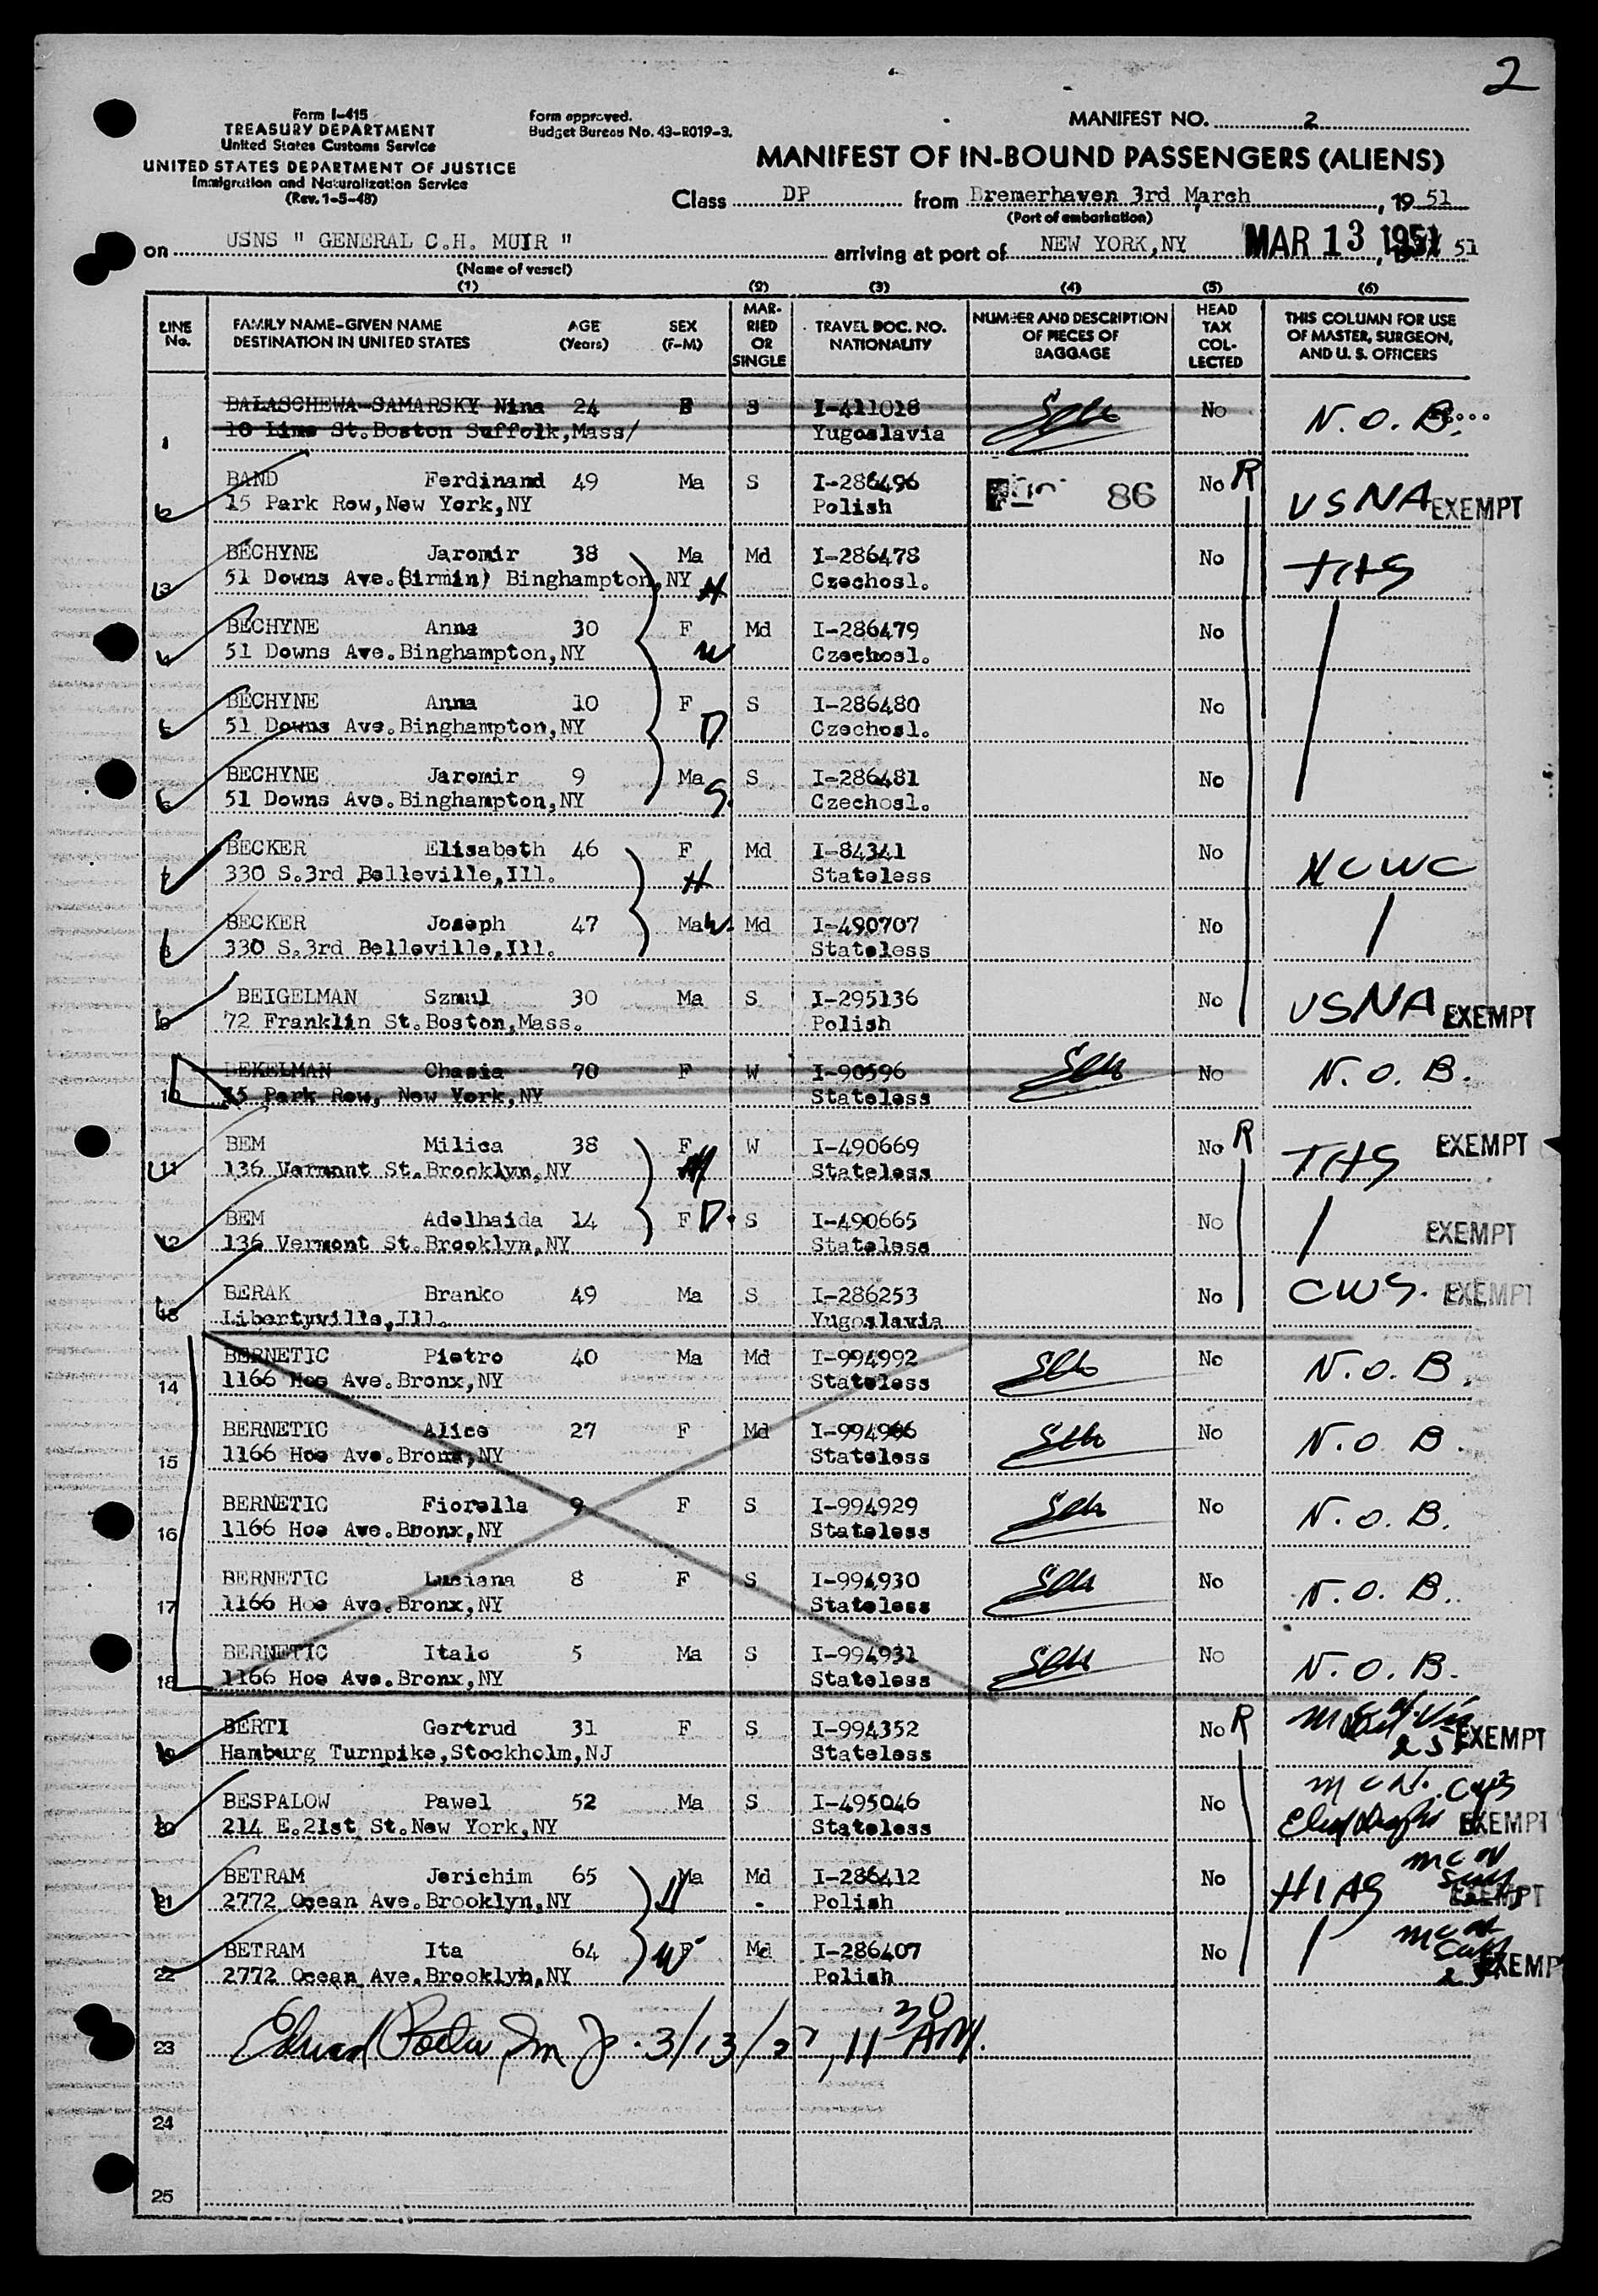 2
Form I-415
TREASURY DEPARTMENT
United States Customs Service
UNITED STATES DEPARTMENT OF JUSTICE
Immigration and Naturalization Service
(Rev. 1-5-48)
Form approved.
Budget Bureau No. 43-R019-3.
MANIFEST NO. 2
MANIFEST OF IN-BOUND PASSENGERS (ALIENS)
Class DP from Bremerhaven 3rd March, 19 51
(Port of embarkation)
on USNS " GENERAL C.H. MUIR " arriving at port of NEW YORK,NY MAR 13 1951, 51
(Name of vessel)
(1) (2) (3) (4) (5) (6)
LINE No. FAMILY NAME-GIVEN NAME DESTINATION IN UNITED STATES AGE (Years) SEX (F-M) MARRIED OR SINGLE TRAVEL DOC. NO. NATIONALITY NUMBER AND DESCRIPTION OF PIECES OF BAGGAGE HEAD TAX COLLECTED THIS COLUMN FOR USE OF MASTER, SURGEON, AND U. S. OFFICERS
BALASCHEWA-SAMARSKY Nina 24 F S I-411018 No N.O.B.
1 10 Lime St.Boston Suffolk,Mass/ Yugoslavia
BAND Ferdinand 49 Ma S I-286496 86 No R USNA EXEMPT
2 15 Park Row,New York,NY Polish
BECHYNE Jaromir 38 Ma Md I-286478 No
3 51 Downs Ave.(Birmin) Binghampton,NY H Czechosl.
BECHYNE Anna 30 F Md I-286479 No
4 51 Downs Ave.Binghampton,NY W Czechosl.
BECHYNE Anna 10 F S I-286480 No
5 51 Downs Ave.Binghampton,NY D Czechosl.
BECHYNE Jaromir 9 Ma S I-286481 No
6 51 Downs Ave.Binghampton,NY S. Czechosl.
BECKER Elisabeth 46 F Md I-84341 No NCWC
7 330 S.3rd Belleville,Ill. H Stateless
BECKER Joseph 47 Ma W. Md I-490707 No
8 330 S.3rd Belleville,Ill. Stateless
BEIGELMAN Szmul 30 Ma S I-295136 No USNA EXEMPT
9 72 Franklin St.Boston,Mass. Polish
BEKELMAN Chasia 70 F W I-90596 No N.O.B.
10 15 Park Row, New York,NY Stateless
BEM Milica 38 F W I-490669 No R EXEMPT
11 136 Vermont St.Brooklyn,NY Stateless
BEM Adelhaida 14 F D. S I-490665 No EXEMPT
12 136 Vermont St.Brooklyn,NY Stateless
BERAK Branko 49 Ma S I-286253 No CWS. EXEMPT
13 Libertyville,Ill. Yugoslavia
BERNETIC Pietro 40 Ma Md I-994992 No N.O.B.
14 1166 Hoe Ave.Bronx,NY Stateless
BERNETIC Alice 27 F Md No N.O.B.
15 1166 Hoe Ave.Bronx,NY Stateless
BERNETIC Fiorella 9 F S I-994929 No N.O.B.
16 1166 Hoe Ave.Bronx,NY Stateless
BERNETIC Luciana 8 F S I-994930 No N.O.B.
17 1166 Hoe Ave.Bronx,NY Stateless
BERNETIC Italo 5 Ma S I-994931 No N.O.B.
18 1166 Hoe Ave.Bronx,NY Stateless
BERTI Gertrud 31 F S I-994352 No R EXEMPT
19 Hamburg Turnpike,Stockholm,NJ Stateless
BESPALOW Pawel 52 Ma S I-495046 No
20 214 E.21st St.New York,NY Stateless EXEMPT
BETRAM Jerichim 65 Ma Md I-286412 No HIAS
21 2772 Ocean Ave.Brooklyn,NY H Polish EXEMPT
BETRAM Ita 64 W F Md I-286407 No
22 2772 Ocean Ave.Brooklyn,NY Polish EXEMP
23 3/13/ , 11 30 AM.
24
25